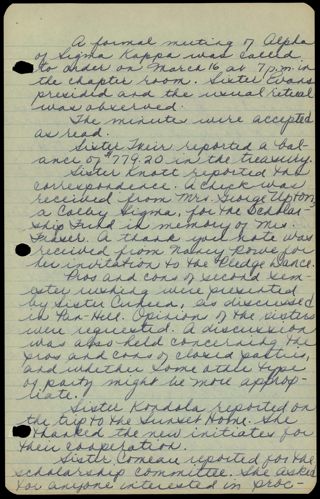 A formal meeting of Alpha
of Sigma Kappa was called
to order on March 16 at 7 p.m. in
the chapter room. Sister Evans
presided and the usual retual
was observed.
The minute were accepted
as read.
Sister Their reported a bal-
ance of $779.20 in the treasury.
Sister Knott reported the
correspondence. A check was
received from Mrs. George Upton,
a Colby Sigma, for the Scholar-
ship Fund in memory of Mrs.
Fraser. A thank you note was
received from Nancy Rowe for
her invitation to the Pledge Dance.
Pros and cons of second sem-
ester rushing were presented
by Sister Cunees, as discussed
in Pan-Hell. Opinion of the sisters
were requested. A discussion
was also held concerning the
pros and cons of closed parties,
and whether some other type
of party might be more approp-
riate.
Sister Kondola reported on
the trip to the Sunset Home. She
thanked the new initiates for
their cooperation.
Sister Comeau reported for the
scholarship committee. She asked
for anyone interested in proc-